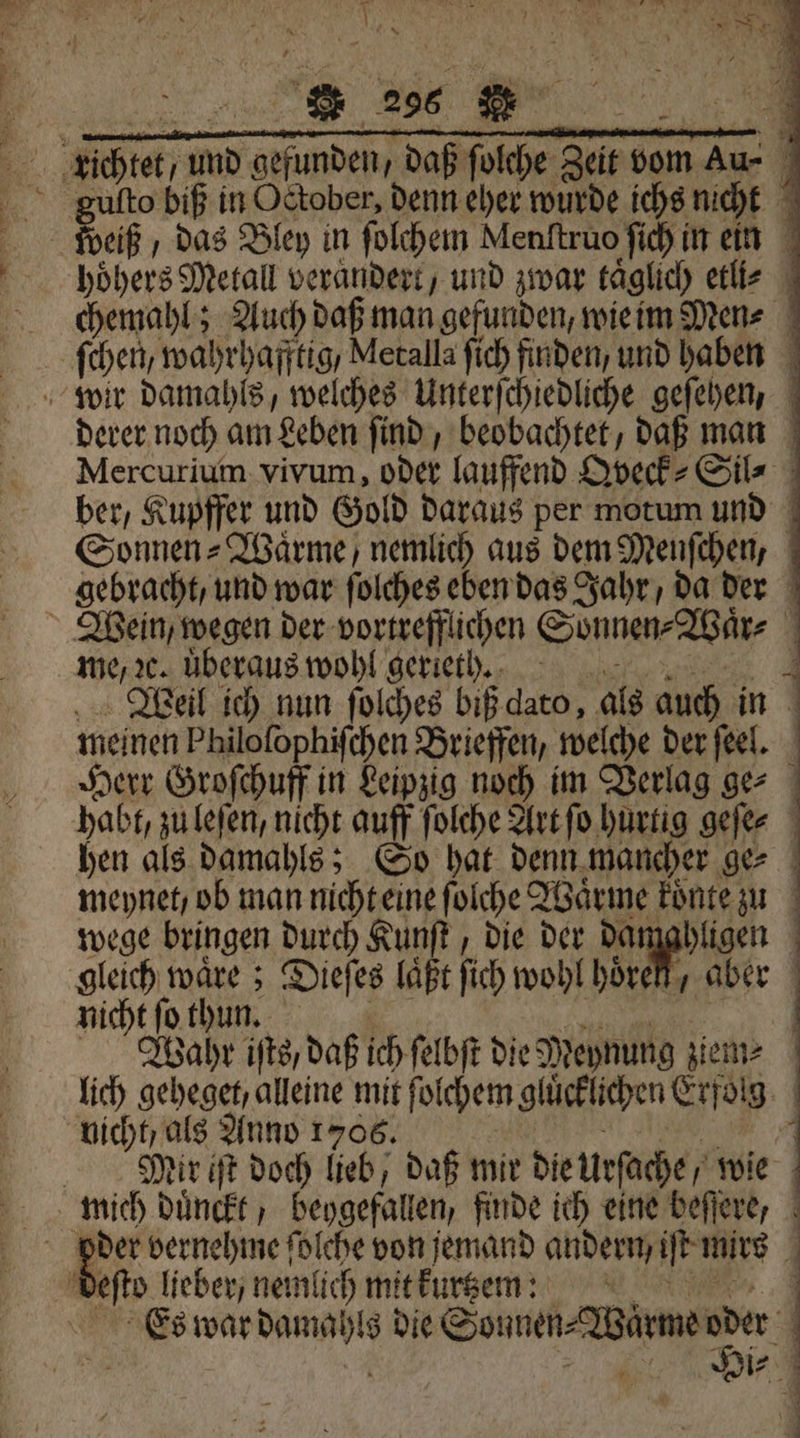 296
richtet, und gefunden, daß ſolche Zeit vom Au-
guſto biß in October, denn eher wurde ichs nicht
weiß, das Bley in ſolchem Menſtruo ſich in ein
hoͤhers Metall veraͤndert, und zwar taͤglich etli⸗
chemahl; Auch daß man gefunden, wie im Men⸗
ſchen, wahrhafftig, Metalla ſich finden, und haben
wir damahls, welches Unterſchiedliche geſehen,
derer noch am Leben ſind, beobachtet, daß man
Mercurium vivum, oder lauffend Qveck⸗Sil⸗
ber, Kupffer und Gold daraus per motum und
Sonnen⸗Waͤrme, nemlich aus dem Menſchen,
gebracht, und war ſolches eben das Jahr, da der
Wein, wegen der vortrefflichen Sonnen⸗Waͤr⸗
me, ꝛc. uͤberaus wohl gerieth.
Weil ich nun ſolches biß dato, als auch in
meinen Philoſophiſchen Brieffen, welche der ſeel.
Herr Groſchuff in Leipzig noch im Verlag ge⸗
habt, zu leſen, nicht auff ſolche Art ſo hurtig geſe⸗
hen als damahls; So hat denn mancher ge⸗
meynet, ob man nicht eine ſolche Waͤrme koͤnte zu
wege bringen durch Kunſt, die der damahligen
gleich waͤre; Dieſes laͤßt ſich wohl hoͤren, aber
nicht ſo thun.
Wahr iſts, daß ich ſelbſt die Meynung ziem⸗
lich geheget, alleine mit ſolchem gluͤcklichen Erfolg
nicht, als Anno 1706.
Mir iſt doch lieb, daß mir die Urſache, wie
mich duͤnckt, beygefallen, finde ich eine beſſere,
oder vernehme ſolche von jemand andern, iſt mirs
deſto lieber, nemlich mit kurtzem:
Es war damahls die Sonnen⸗Waͤrme oder
Hi⸗